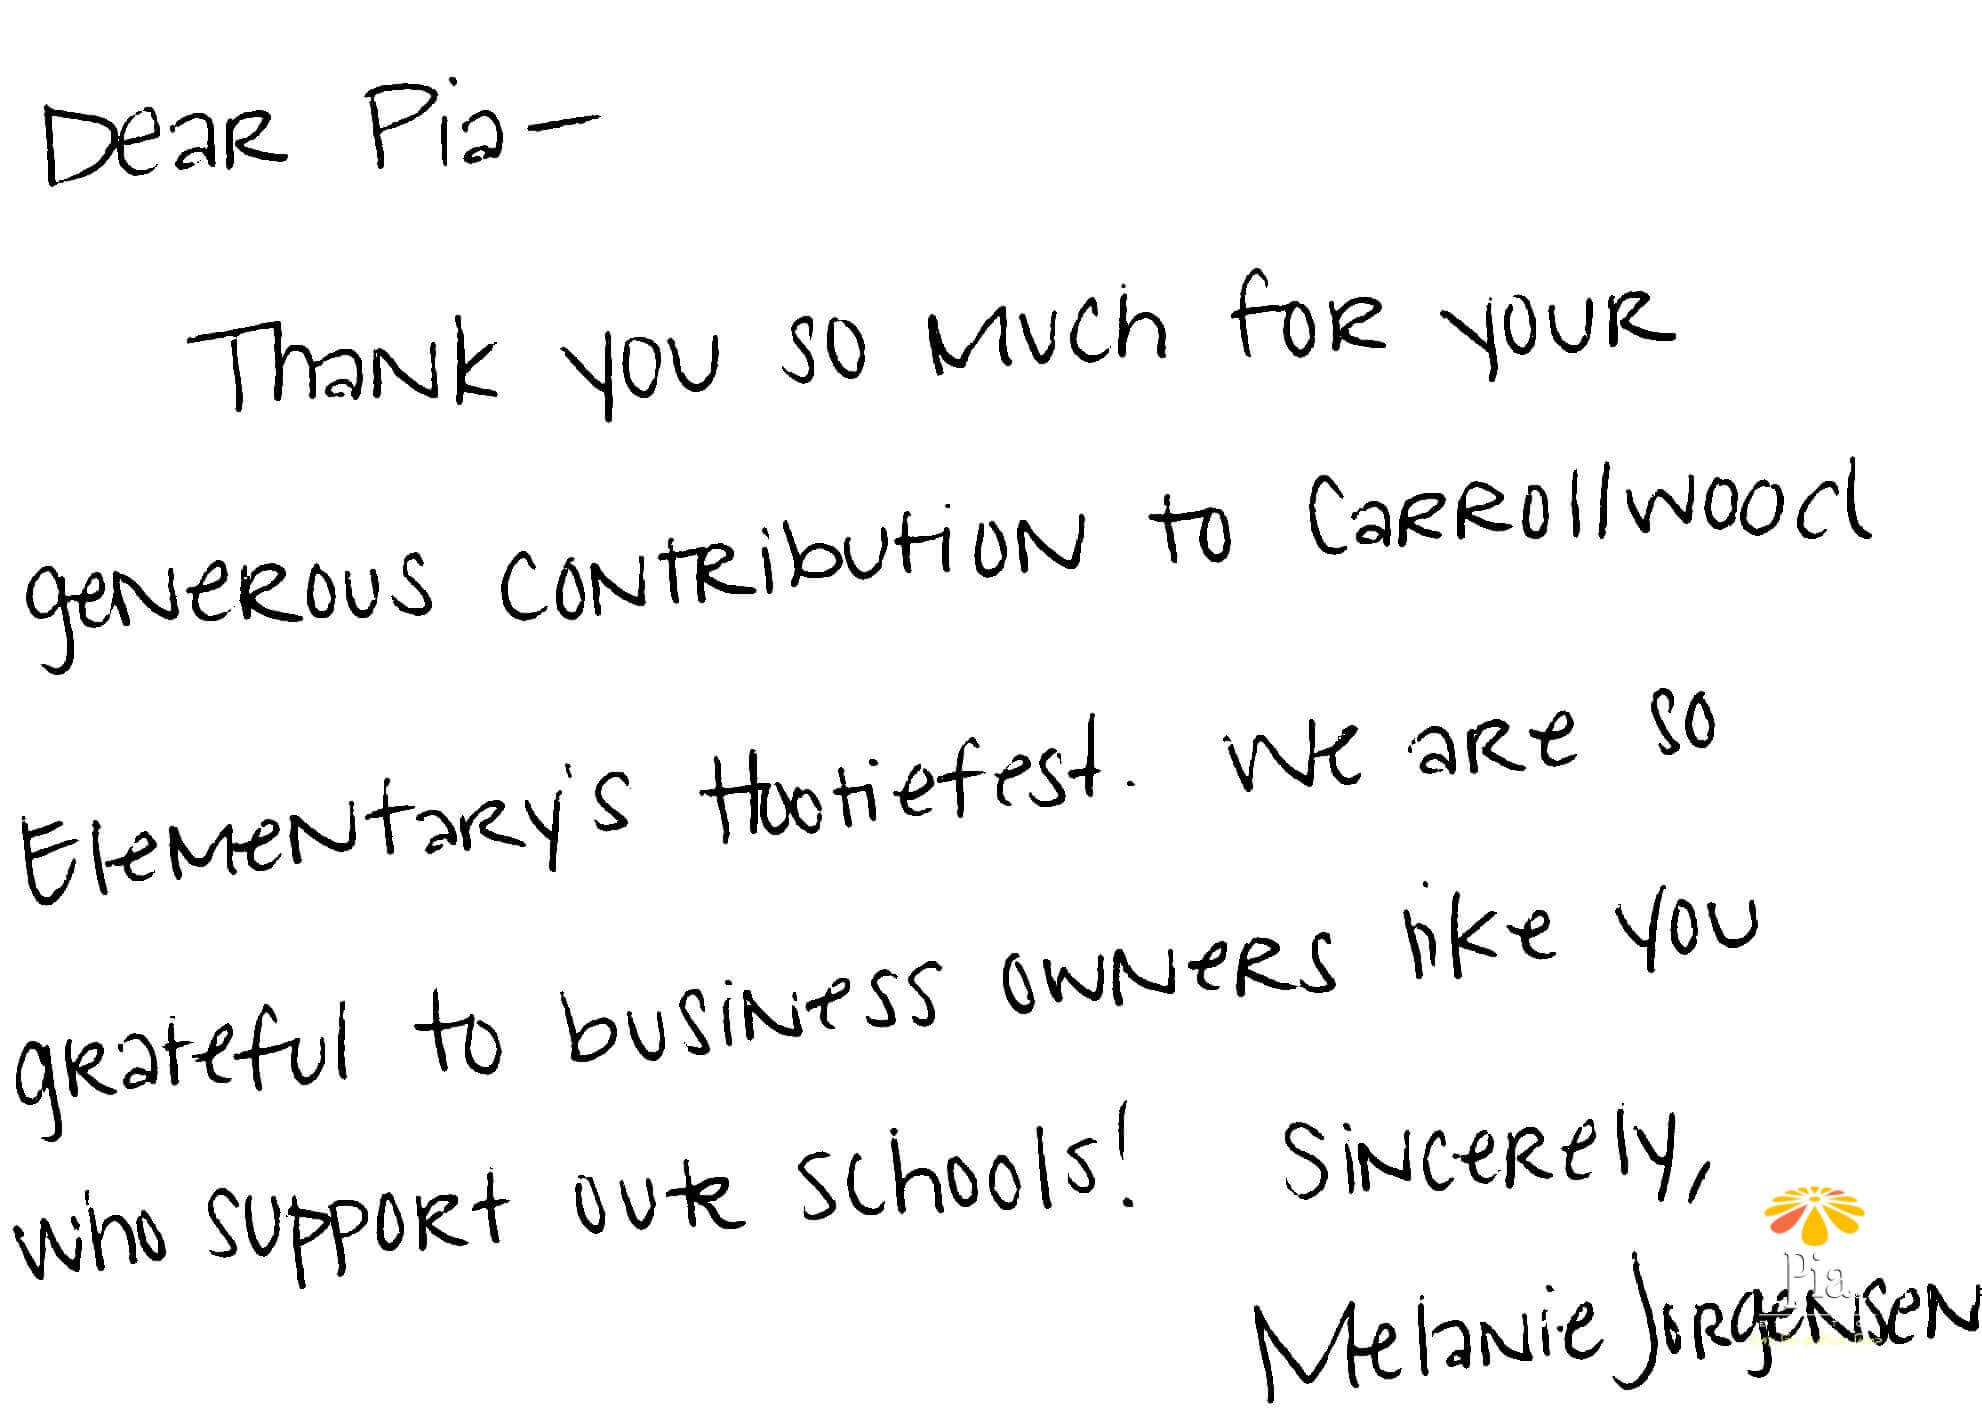 Dear Pia-
Thank you so much for your
generous contribution to Carrollwood
Elementary's Hootiefest. We are so
grateful to business owners like you
who support our schools! Sincerely,
Melanie Jorgensen
Pia